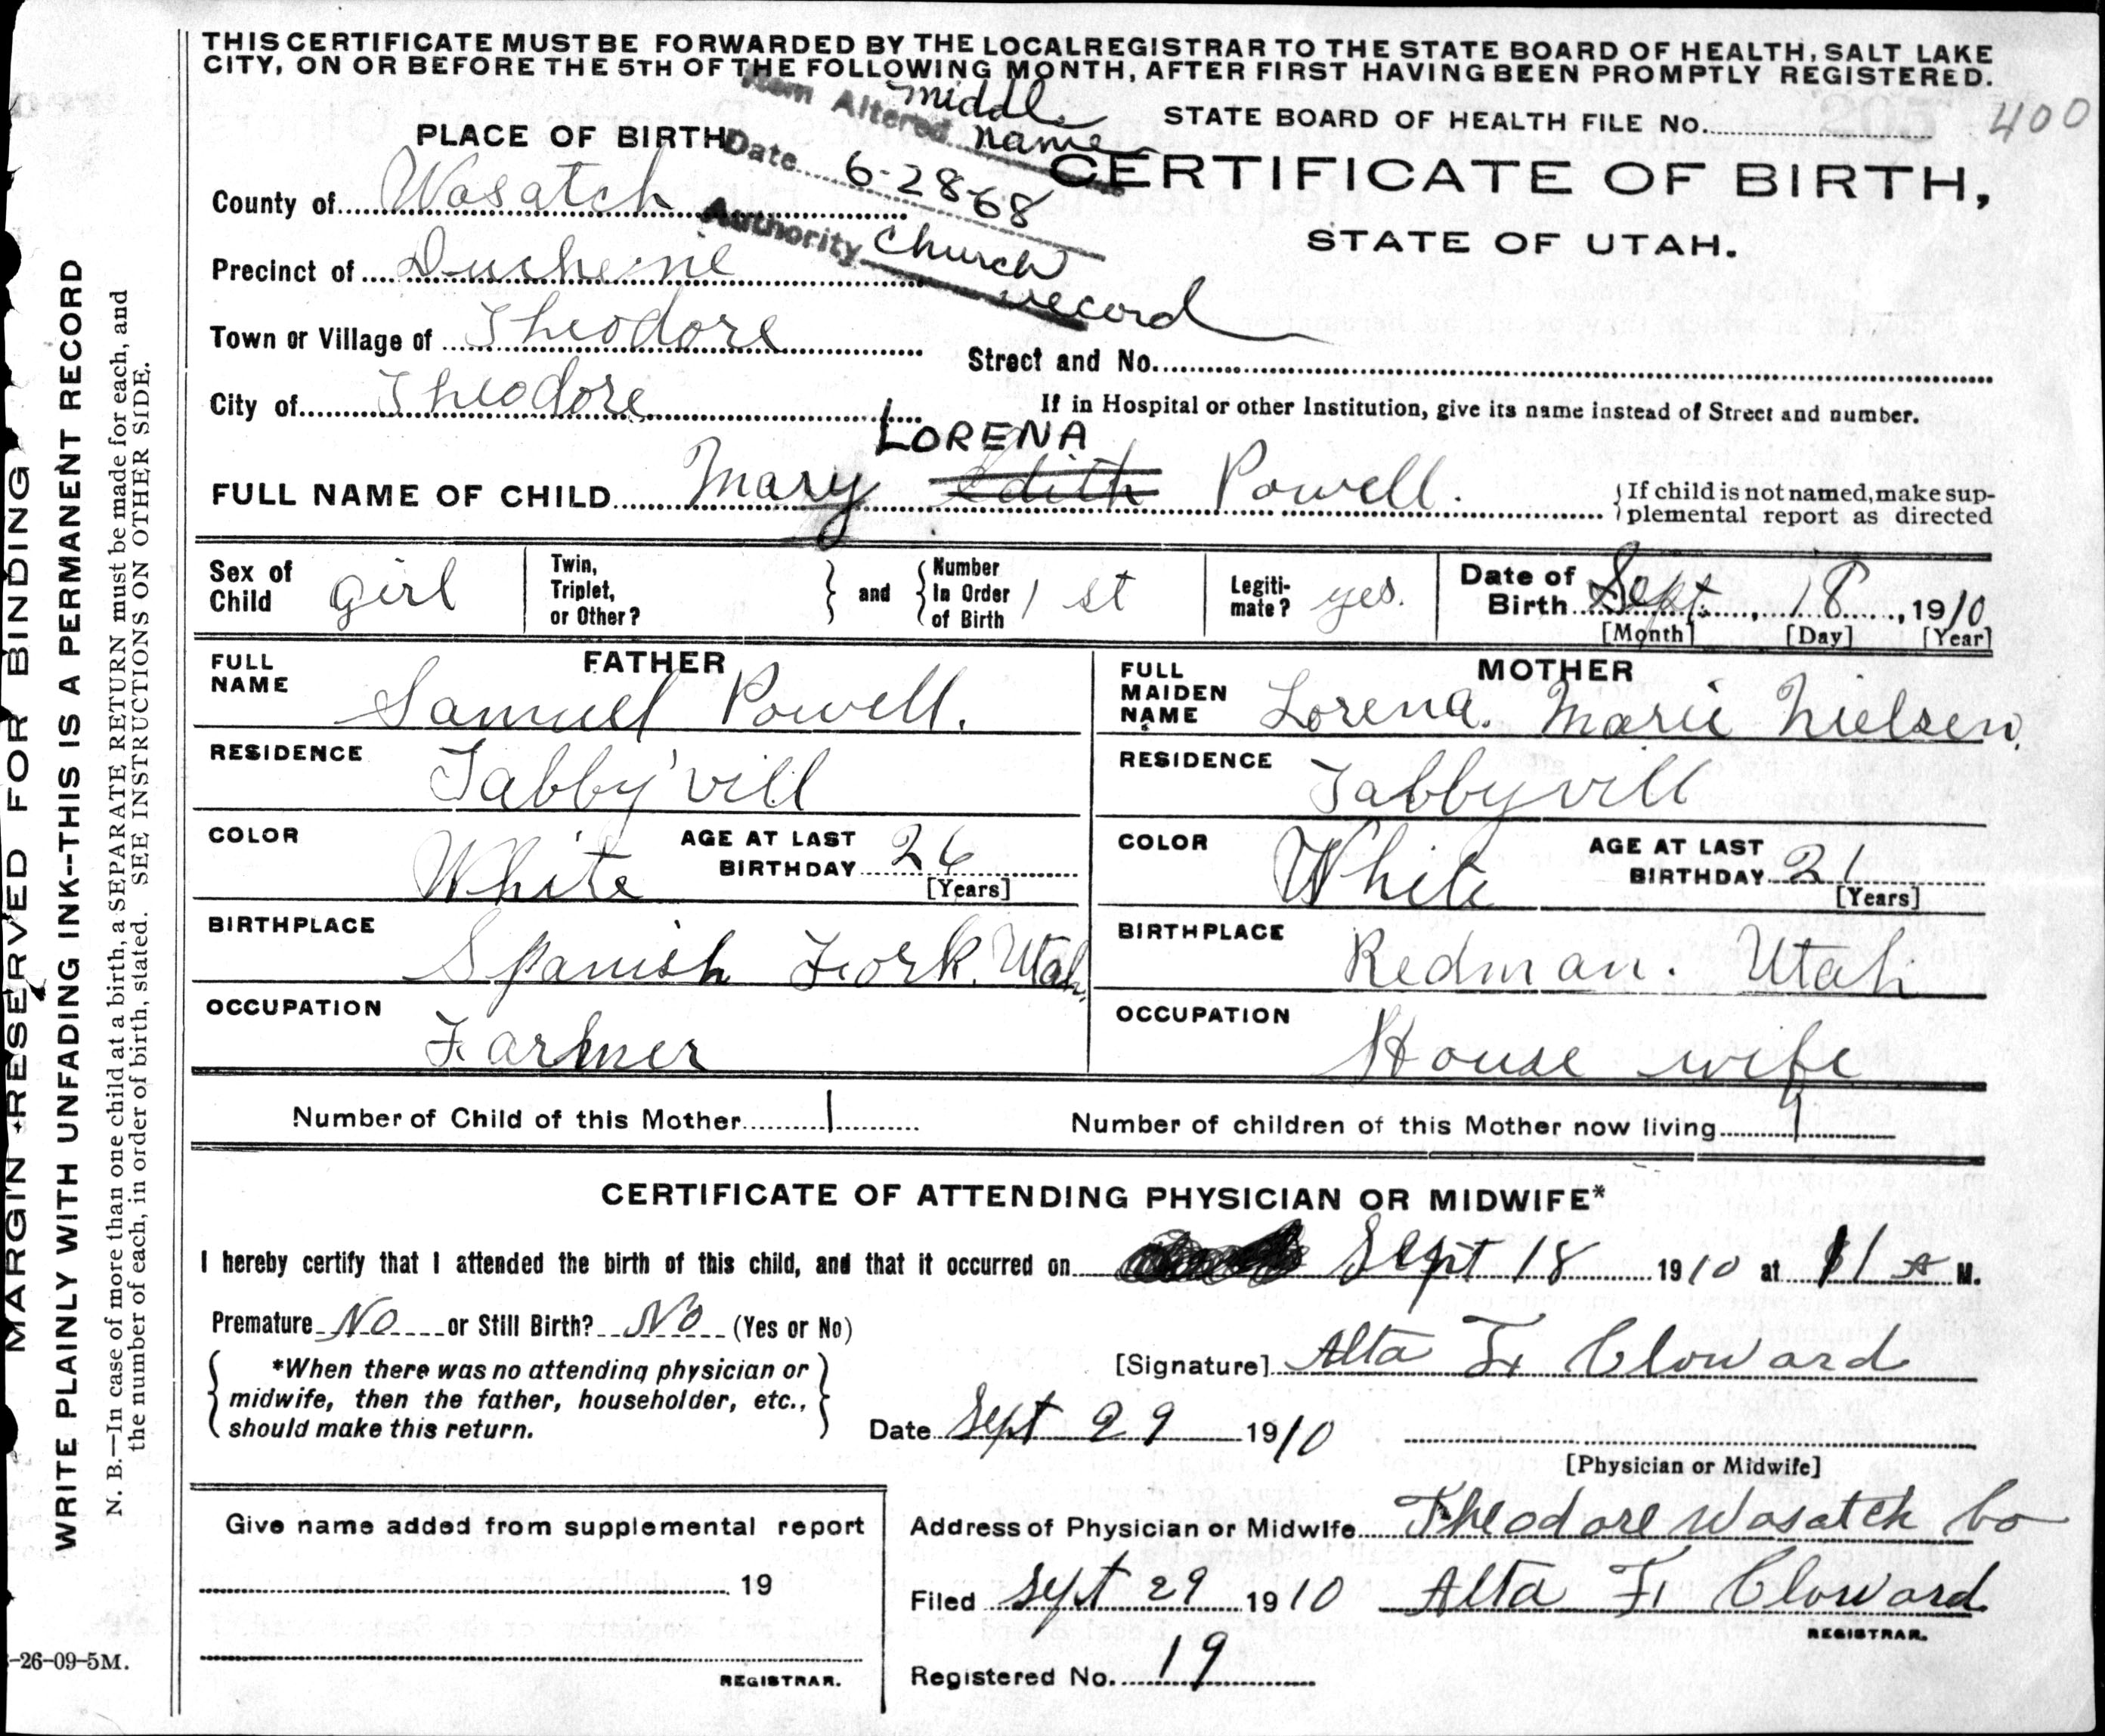 THIS CERTIFICATE MUST BE FORWARDED BY THE LOCAL REGISTRAR TO THE STATE BOARD OF HEALTH, SALT LAKE
CITY, ON OR BEFORE THE 5TH OF THE FOLLOWING MONTH, AFTER FIRST HAVING BEEN PROMPTLY REGISTERED.
Item Altered middle name
Date 6-28-68
Authority Church record
STATE BOARD OF HEALTH FILE No. 400
PLACE OF BIRTH
CERTIFICATE OF BIRTH,
STATE OF UTAH.
County of Wasatch
Precinct of Ducheine
Town or Village of Theodore
Street and No.
City of Theodore
If in Hospital or other Institution, give its name instead of Street and number.
LORENA
FULL NAME OF CHILD Mary Edith Powell.
If child is not named, make sup-
plemental report as directed
Sex of Child girl
Twin, Triplet, or Other?
and Number In Order of Birth 1 st
Legiti-mate? yes.
Date of Birth Sept. 18, 1910
[Month] [Day] [Year]
FATHER
FULL NAME Samuel Powell.
RESIDENCE Tabby'vill
COLOR White AGE AT LAST BIRTHDAY 26 [Years]
BIRTHPLACE Spanish Fork. Utah.
OCCUPATION Farmer
MOTHER
FULL MAIDEN NAME Lorena. Marie Nielsen.
RESIDENCE Tabbyvill
COLOR White AGE AT LAST BIRTHDAY 21 [Years]
BIRTHPLACE Redman. Utah
OCCUPATION House wife
Number of Child of this Mother 1
Number of children of this Mother now living 1
CERTIFICATE OF ATTENDING PHYSICIAN OR MIDWIFE*
I hereby certify that I attended the birth of this child, and that it occurred on Sept 18 1910 at 11 A M.
Premature No or Still Birth? No (Yes or No)
*When there was no attending physician or
midwife, then the father, householder, etc.,
should make this return.
[Signature] Alta F. Cloward
Date Sept 29 1910
[Physician or Midwife]
Give name added from supplemental report
19
REGISTRAR.
Address of Physician or Midwife Theodore Wasatch Co
Filed Sept 29 1910 Alta F. Cloward
REGISTRAR.
Registered No. 19
MARGIN RESERVED FOR BINDING
WRITE PLAINLY WITH UNFADING INK--THIS IS A PERMANENT RECORD
N. B.—In case of more than one child at a birth, a SEPARATE RETURN must be made for each, and
the number of each, in order of birth, stated. SEE INSTRUCTIONS ON OTHER SIDE.
-26-09-5M.